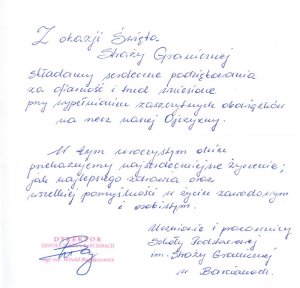 Z okazji Święta
Straży Granicznej
składamy serdeczne podziękowania
za ofiarność i trud wniesione
przy wypełnianiu zaszczytnych obowiązków
na rzecz naszej Ojczyzny.
W tym uroczystym dniu
przekazujemy najserdeczniejsze życzenia;
jak najlepszego zdrowia oraz
wszelkiej pomyślności w życiu zawodowym
i osobistym.
DYREKTOR
Uczniowie i pracownicy
Szkoły Podstawowej
im. Straży Granicznej
w Barcianach.